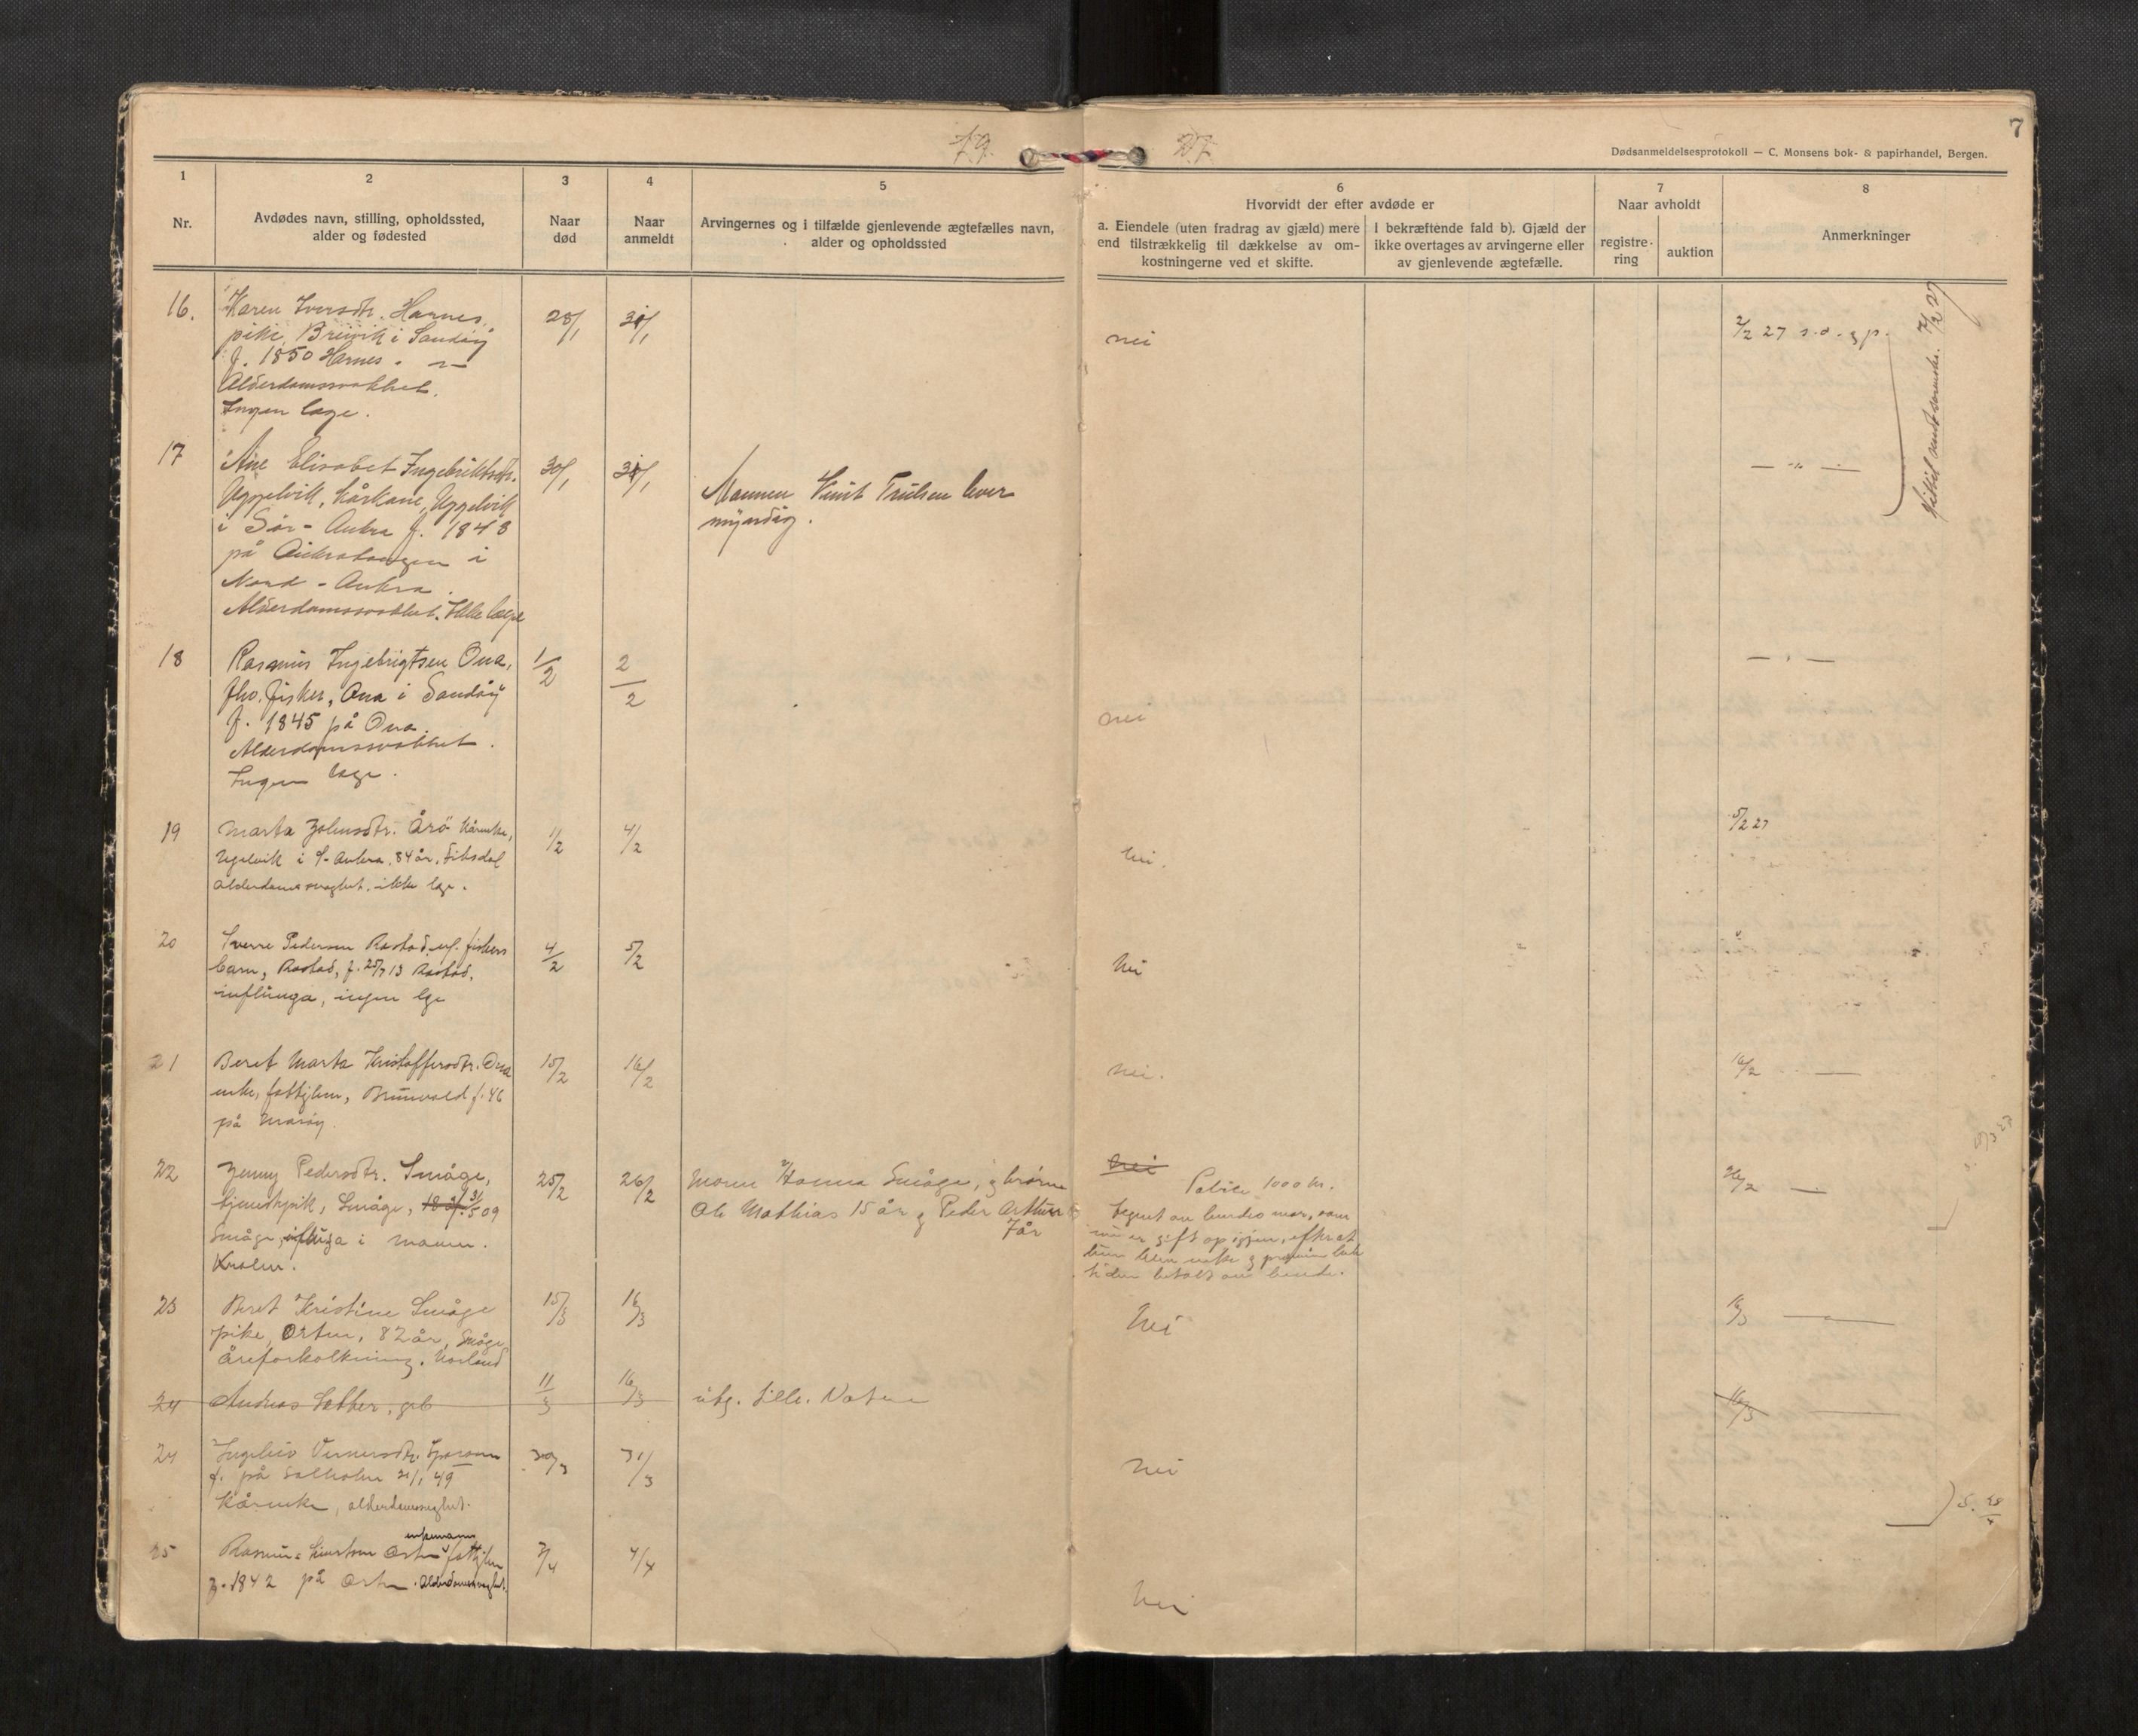 19
27
7
Dødsanmeldelsesprotokoll — C. Monsens bok- & papirhandel, Bergen.
1
2
3
4
5
6
7
8
Nr.
Avdødes navn, stilling, opholdssted,
alder og fødested
Naar
død
Naar
anmeldt
Arvingernes og i tilfælde gjenlevende ægtefælles navn,
alder og opholdssted
Hvorvidt der efter avdøde er
a. Eiendele (uten fradrag av gjæld) mere
end tilstrækkelig til dækkelse av om-
kostningerne ved et skifte.
I bekræftende fald b). Gjæld der
ikke overtages av arvingerne eller
av gjenlevende ægtefælle.
Naar avholdt
registre-
ring
auktion
Anmerkninger
16.
Karen Iversdtr. Harnes,
pike, Breivik i Sandöy
f. 1850 Harnes.
Alderdomssvakhet.
Ingen læge.
28/1
31/1
nei
2/2 27 s.d. g p.
7/2 27
17
Ane Elisabet Ingebriktsdtr.
Uggelvik, kårkone, Uggelvik
i Sör-Aukra f. 1843
på Aukratangen i
Nord-Aukra.
Alderdomssvakhet. Ikke læge
30/1
31/1
Mannen Knut Trulsen lever
myndig.
— " —
18
Rasmus Ingebrigtsen Ona,
fhv. fisker, Ona i Sandöy
f. 1845 på Ona.
Alderdomssvakhet.
Ingen læge.
1/2
2/2
nei
— " —
19
Marta Johnsdtr. Årö kårenke,
Ugelvik i S-Aukra, 84 år,
alderdomssvaghet, ikke lge.
1/2
4/2
nei.
5/2 27
20
Sverre Pedersen Rastad, ug. fiskers
barn, Rastad, f. 25/7 13 Rastad,
influenga, ingen lge
4/2
5/2
nei
21
Beret Marta Kristoffersdtr. Ona
enke, fattiglem, f. 46
på
15/2
16/2
nei.
16/2 —
22
Jenny Pedersdtr. Småge,
tjenestpik, Småge, 31/5 09
Småge, influenga i maven.
25/2
26/2
Moren Hanna Småge, g brörne
Ole Mathias 15 år g Peder Arthur
7 år
nei
Police 1000 kr.
tegnet av hendes mor, som
nu er gift op igjen, efter at
hun blev enke g
tiden betalt av hende.
26/2 —
23
Beret Kristine Småge
pike, Orten, 82 år, Småge
åreforkalkning.
15/3
16/3
nei
16/3 —
24
Andreas Sæther, grb
11/3
16/3
utg. Lille.
16/3 —
24
f. på Salholm 21/1 49
Kårenke, alderdomssvaghet.
30/3
31/3
nei
S. 28/4
25
enkemann
Rasmus Knutsen Orten, fattiglem
f. 1842 på Orten. Alderdomssvaghet.
2/4
4/4
nei